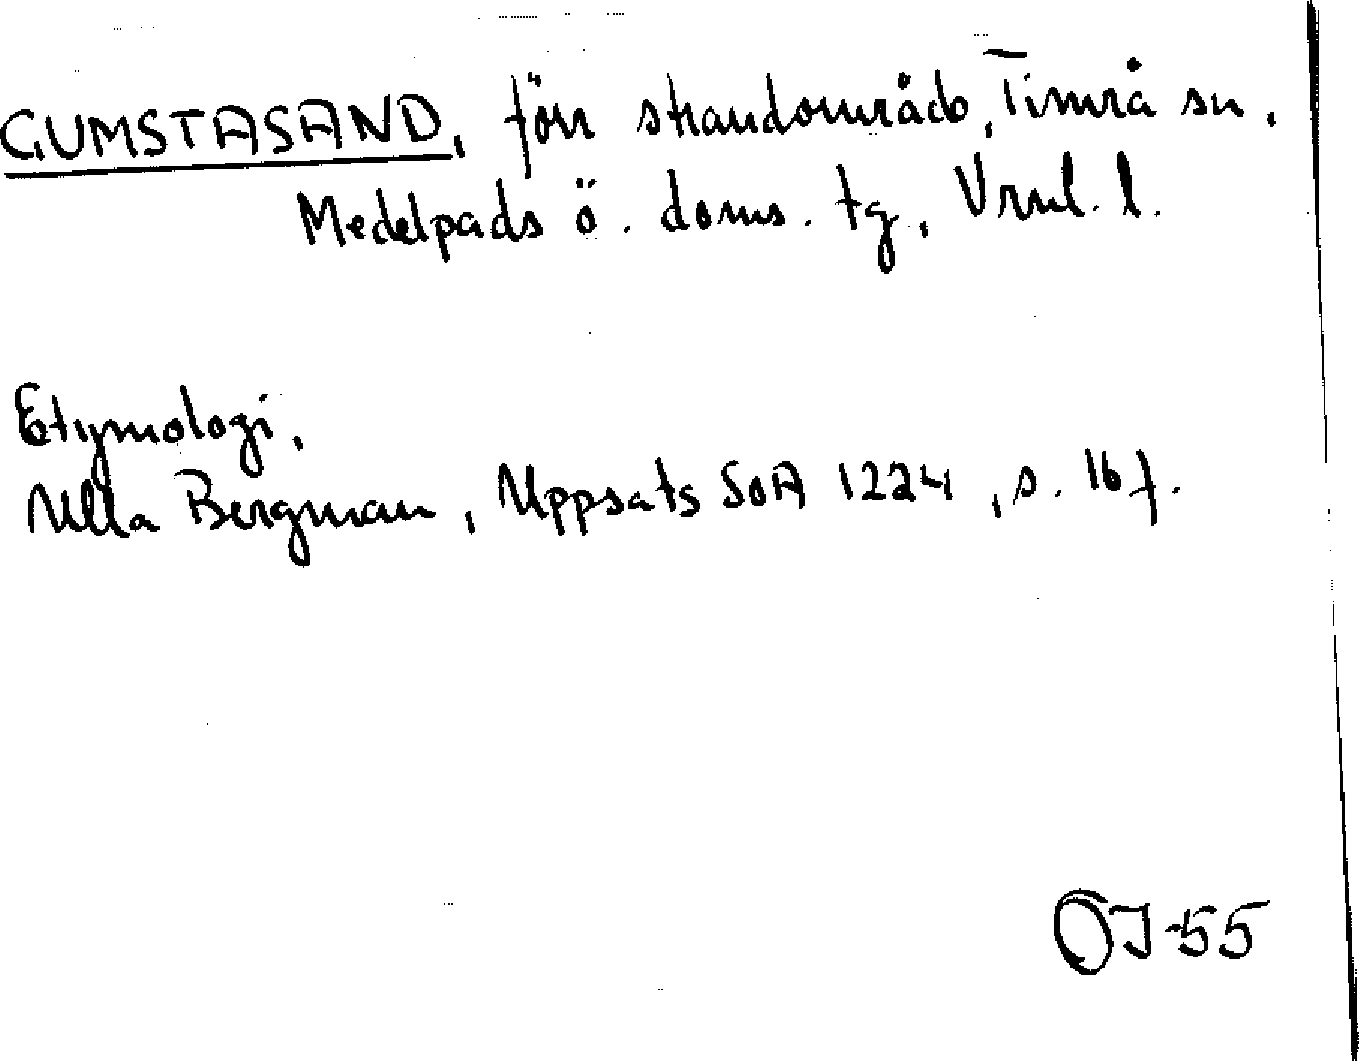 GUMSTASAND, förr strandområde, Timrå sn,
Medelpads ö. doms. tg, Vrnl. l.
Etymologi,
Ulla Bergman, Uppsats SOA 1224, s. 16 f.
OJ-55